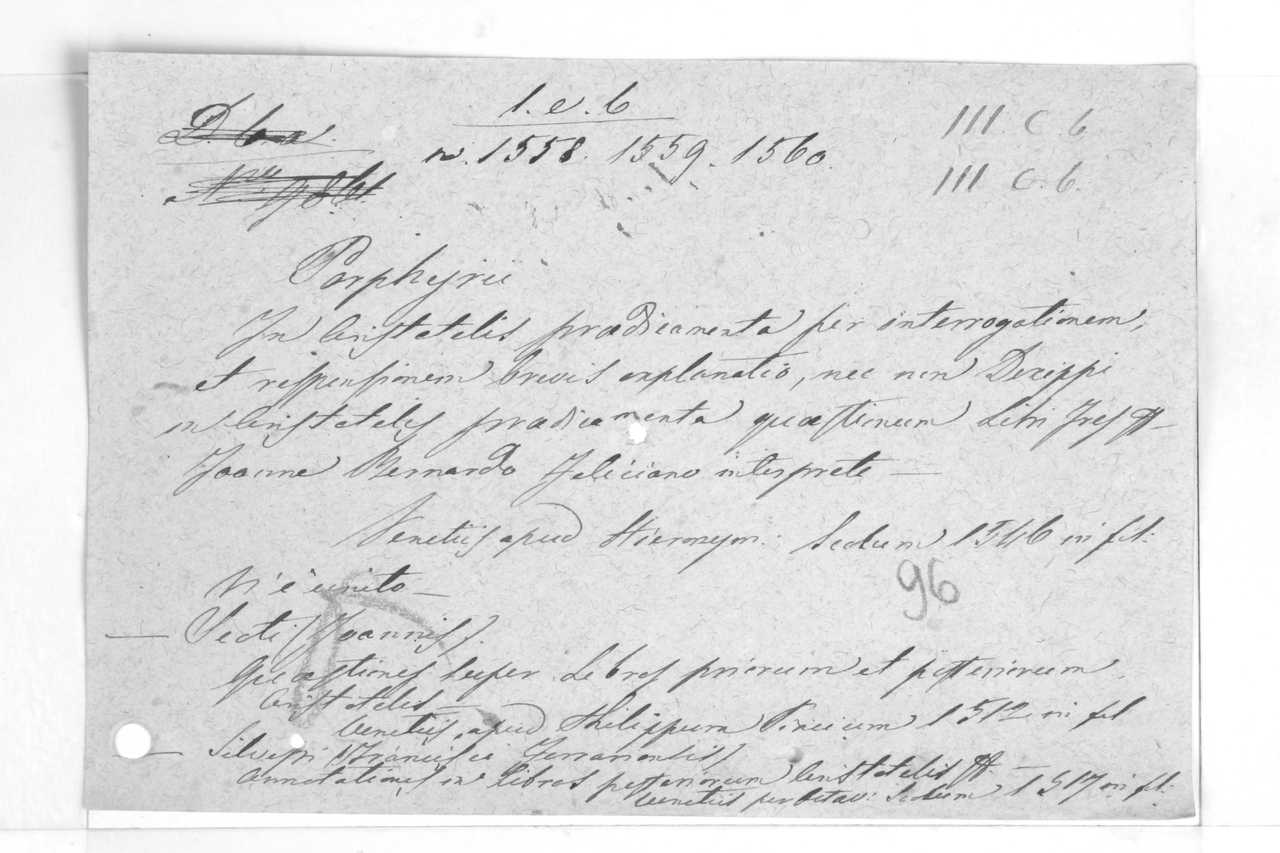 1. e. 6
III. C. 6
n. 1558. 1559. 1560.
III C. 6.
Porphyrii
In Aristotelis prædicamenta per interrogationem,
et responsionem brevis explanatio, nec non Dexippi
in Aristotelis prædicamenta quæstionum Libri Tres
Joanne Bernardo Feliciano interprete —
Venetiis apud Hieronym: Scotum 1546 in fol:
96
Vi è unito —
— Scoti Joannis
Quæstiones super Libros priorum et posteriorum
Aristotelis —
Venetiis, apud Philippum Pincium 1512 in fol
— Silvestri Francisci Ferrariensis
Annotationes in libros posteriorum Aristotelis
Venetiis per Octav: Scotum 1517 in fol: